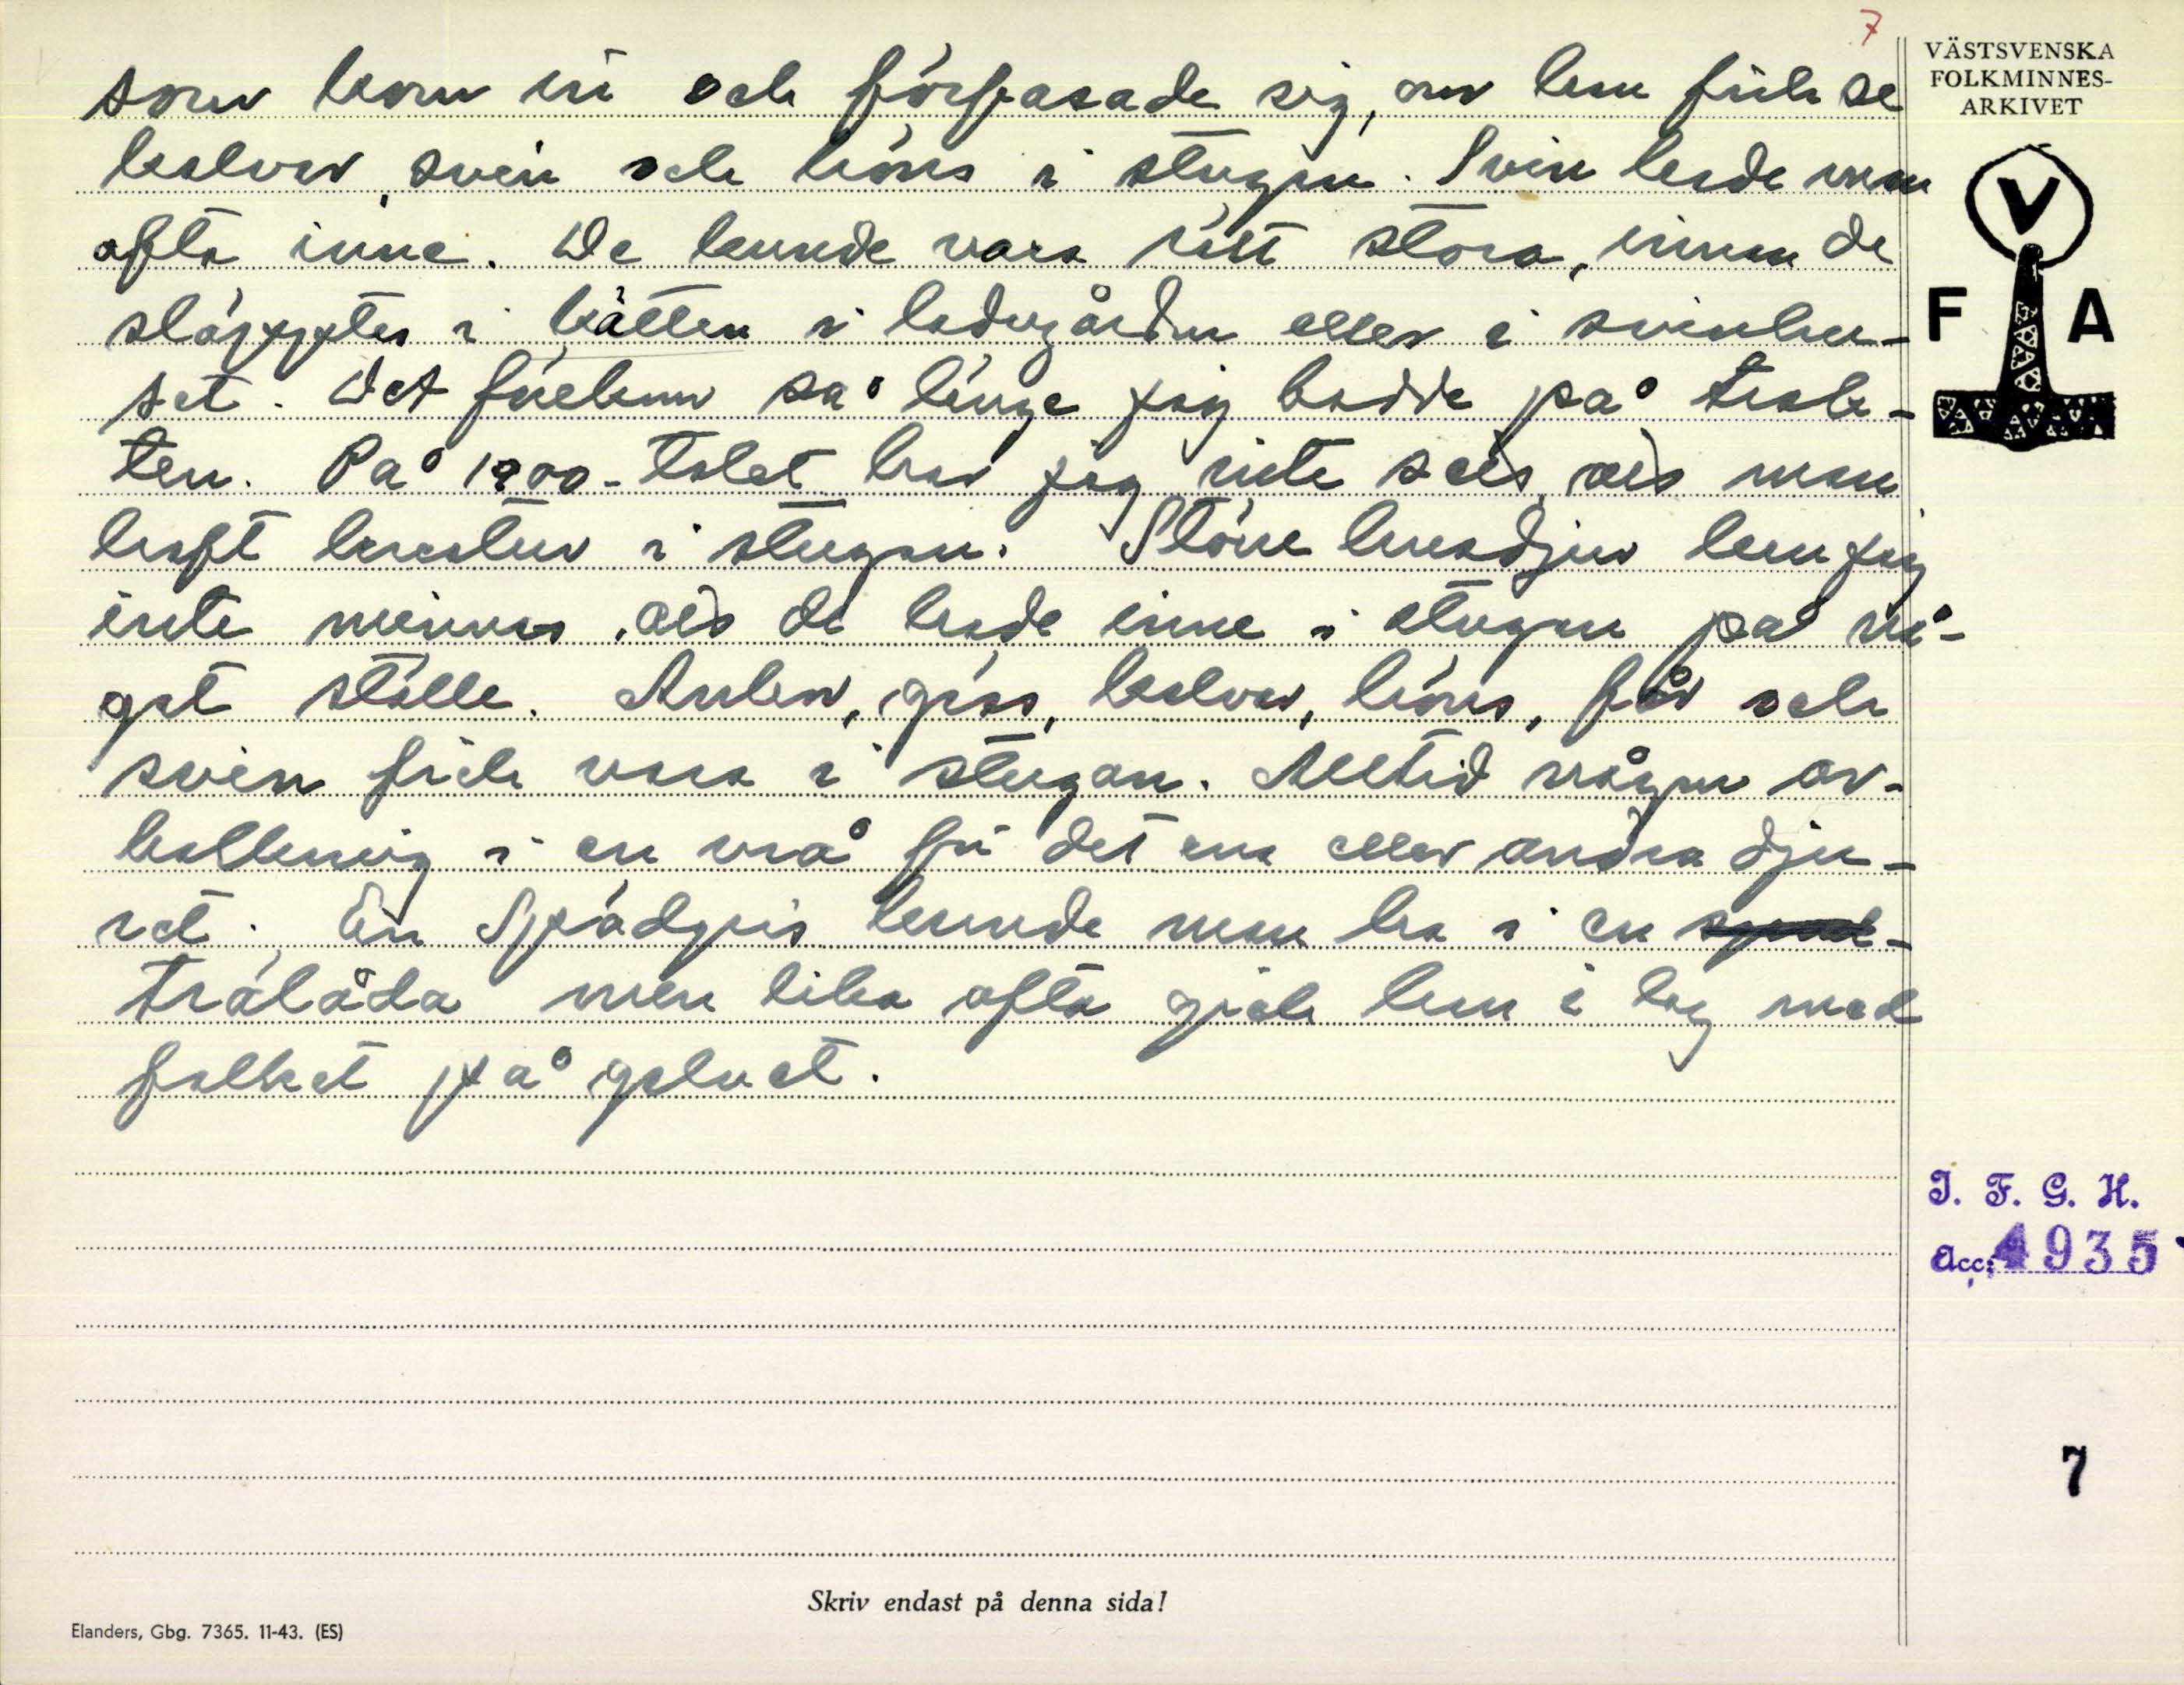 7
VÄSTSVENSKA
FOLKMINNES-
ARKIVET
som kom in och förfasade sig, om han fick se
kalvar, svin och höns i stugan. Svin hade man
ofta inne. De kunde vara rätt stora, innan de
släpptes i kätten i ladugården eller i svinhu-
set. Det förekom så länge jag bodde på trak-
ten. På 1900-talet har jag inte sett, att man
haft kreatur i stugan. Större husdjur kan jag
inte minnas, att de hade inne i stugan på nå-
got ställe. Ankor, gäss, kalvar, höns, får och
svin fick vara i stugan. Alltid någon av-
balkning i en vrå för det ena eller andra dju-
ret. En spädgris kunde man ha i en
trälåda men lika ofta gick han i lag med
folket på golvet.
V
F A
I. F. G. H.
Acc: 4935
7
Skriv endast på denna sida!
Elanders, Gbg. 7365. 11-43. (ES)